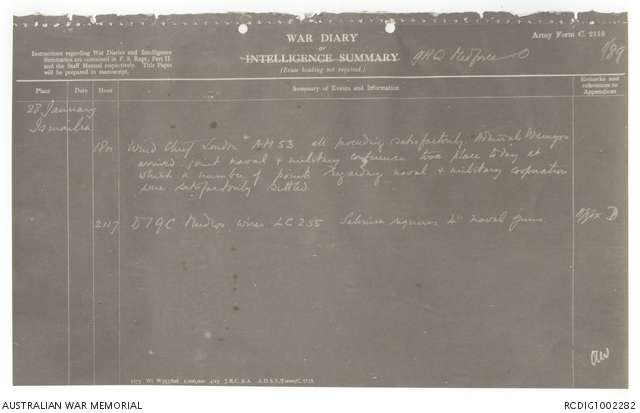 WAR DIARY
or
INTELLIGENCE SUMMARY
(Erase heading not required.)
Army Form C. 2118
Instructions regarding War Diaries and Intelligence
Summaries are contained in F. S. Regs., Part II.
and the Staff Manual respectively. Title Pages
will be prepared in manuscript.
GHQ Medforce
189
Place
Date
Hour
Summary of Events and Information
Remarks and
references to
Appendices
28 January
Ismailia
1800 Wired Chief London AH 53 all proceeding satisfactorily Admiral Wemyss
arrived joint naval & military conference took place today at
which a number of points regarding naval & military cooperation
were satisfactorily settled.
2117 Mudros wires LC 255 Salonica requires 4" naval guns.
Appx D
AUSTRALIAN WAR MEMORIAL
RCDIG1002282